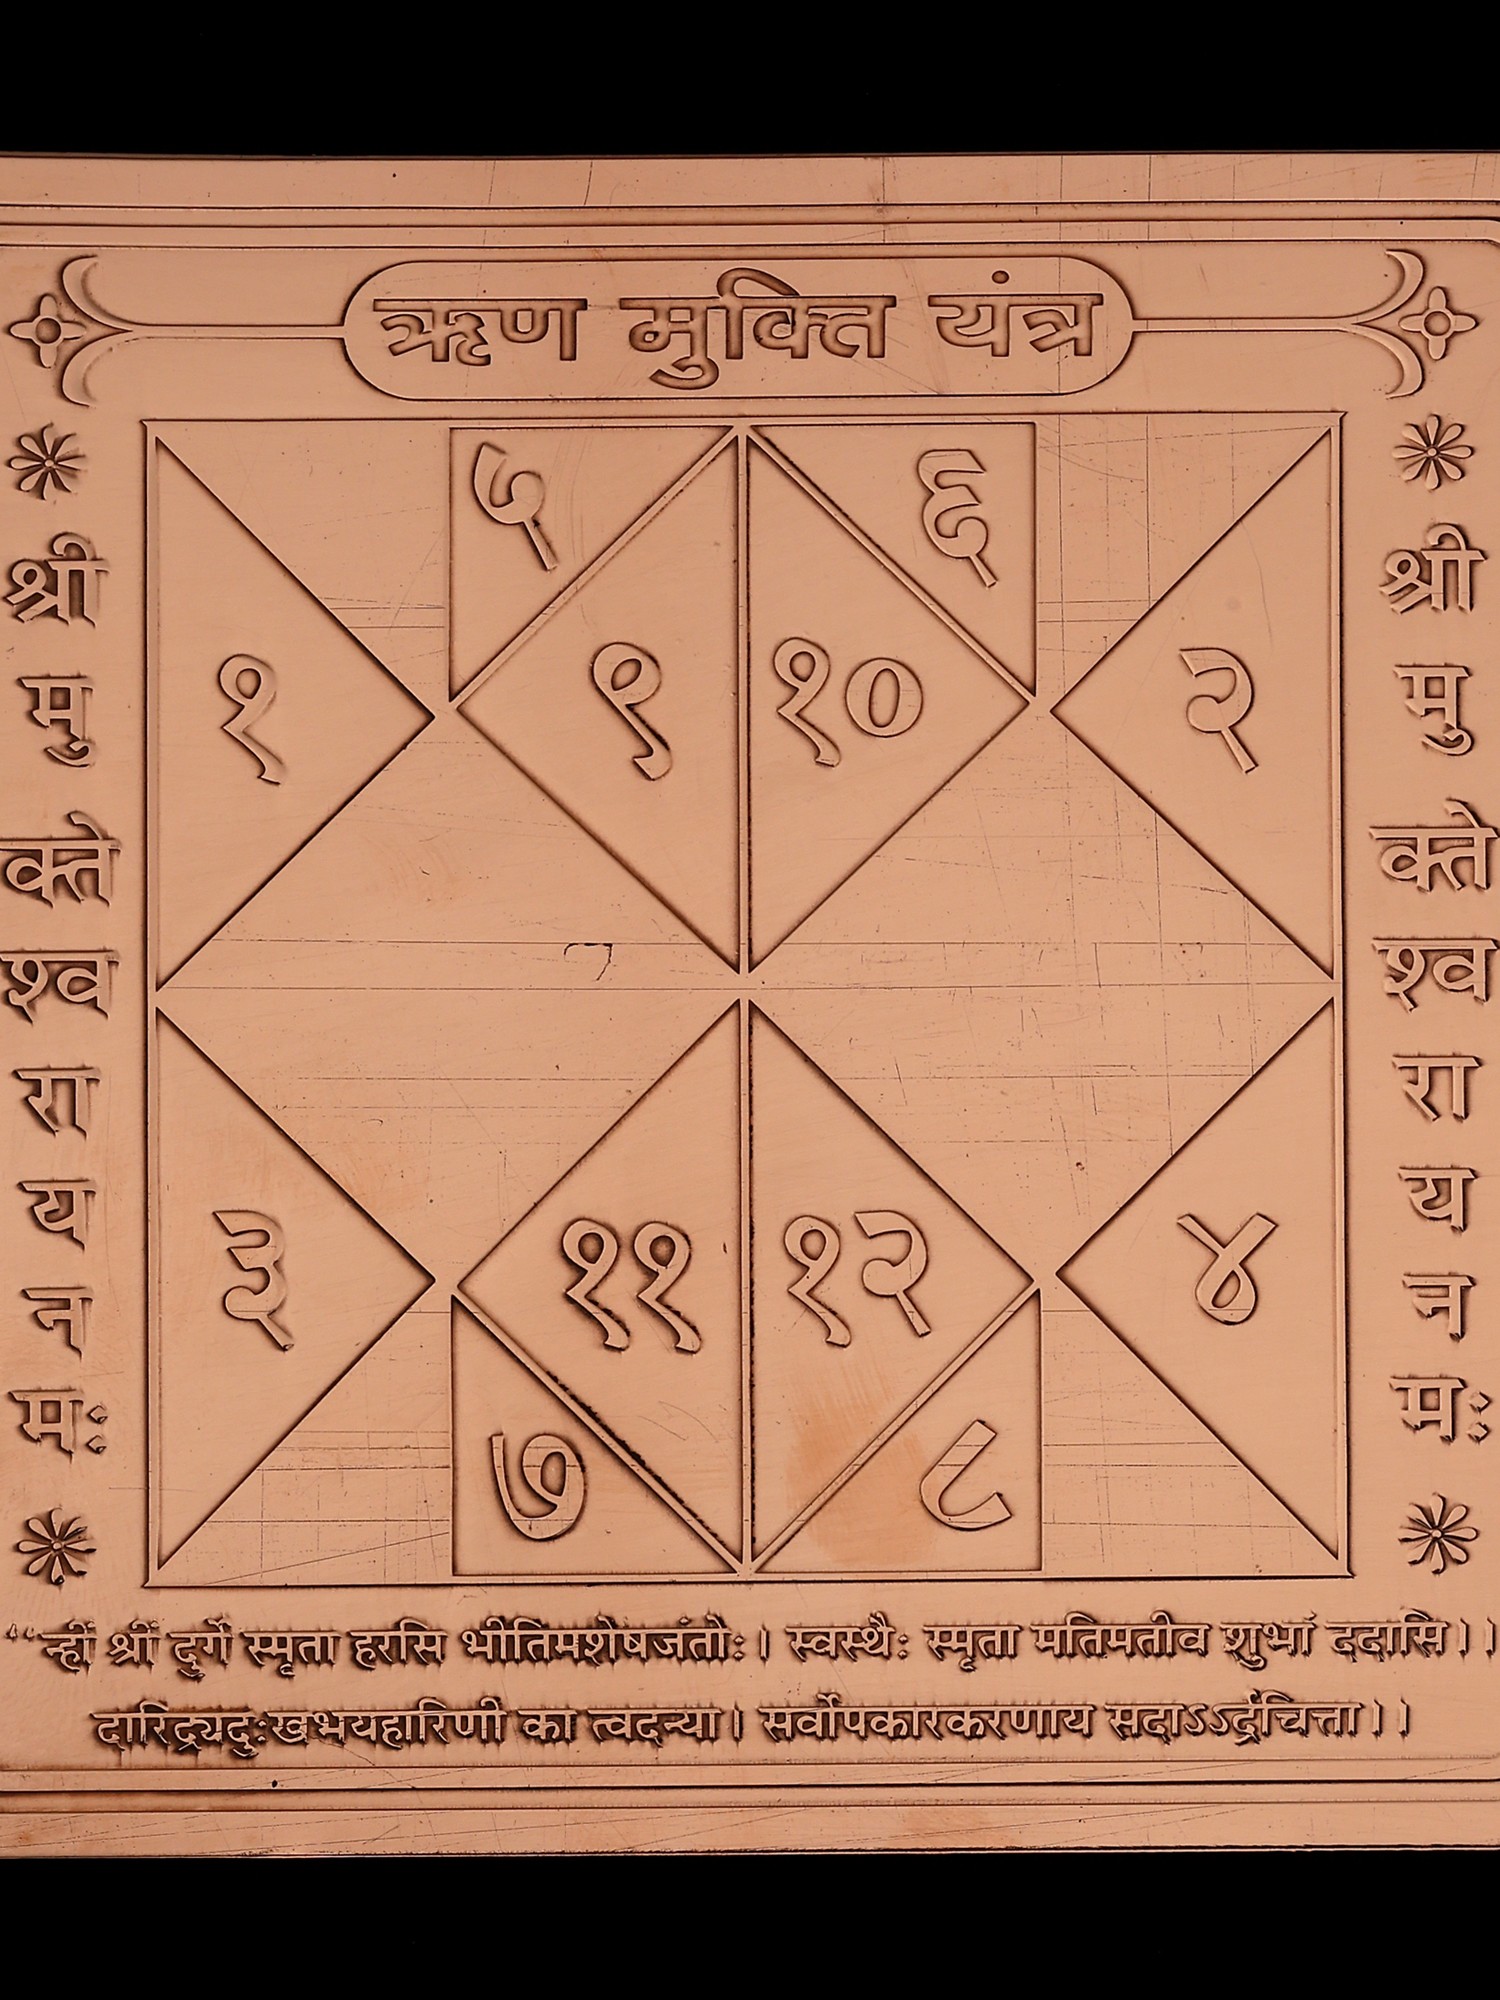 ऋण मुक्ति यंत्र
श्री मुक्तेश्वराय नमः
५ ६
१ ९ १० २
३ ११ १२ ४
७ ८
श्री मुक्तेश्वराय नमः
“न्हीं श्रीं दुर्गे स्मृता हरसि भीतिमशेषजंतोः। स्वस्थैः स्मृता मतिमतीव शुभां ददासि।।
दारिद्र्यदुःखभयहारिणी का त्वदन्या। सर्वोपकारकरणाय सदाऽऽर्द्रचित्ता।।